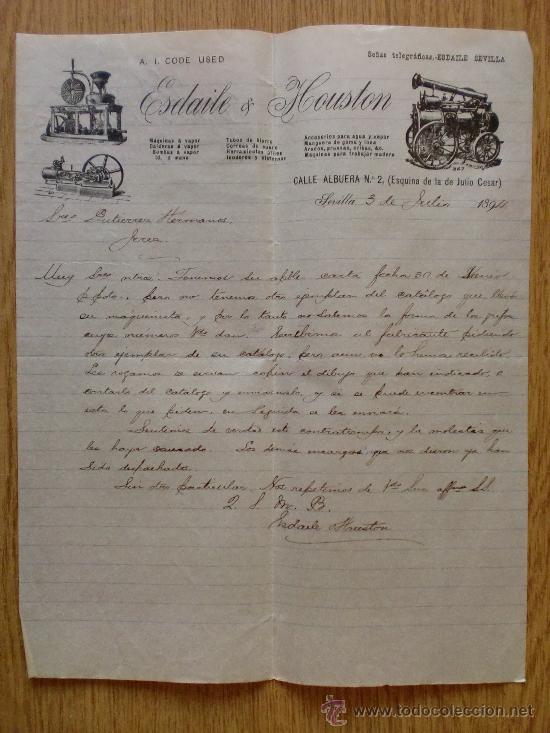 A. I. CODE USED
Señas telegráficas, ESDAILE SEVILLA
Esdaile & Houston
Máquinas á vapor
Calderas á vapor
Bombas á vapor
Id. á mano
Tubos de hierro
Correas de cuero
Herramientas útiles
Inodoros y Cisternas
Accesorios para agua y vapor
Manguera de goma y lona
Arados, prensas, cribas, &c.
Máquinas para trabajar madera
CALLE ALBUERA N.º 2, (Esquina de la de Julio Cesar)
Sevilla 3 de Julio 189
Sres Gutierrez Hermanos.
Jerez
Muy Sres ntros: Tenemos su afble carta fecha 30 de Junio
ppdo. pero no tenemos otro ejemplar del catálogo que llevó
su maquinista, y por lo tanto no sabemos la forma de los grifos
cuyo número Vds dan. Escribimos al fabricante pidiendo
otro ejemplar de su catálogo, pero aun no lo hemos recibido.
Les rogamos se sirvan copiar el dibujo que han indicado, o
cortarlo del catálogo y enviarnoslo, y si se puede encontrar en
esta lo que piden, en seguida se les enviará.
Sentimos de verdad este contratiempo, y la molestia que
les haya causado. Los demas encargos que nos dieron ya han
sido despachados.
Sin otro particular. Nos repetimos de Vds Sus affmos SS.
Q. S. M. B.
Esdaile Houston
todocoleccion
www.todocoleccion.net